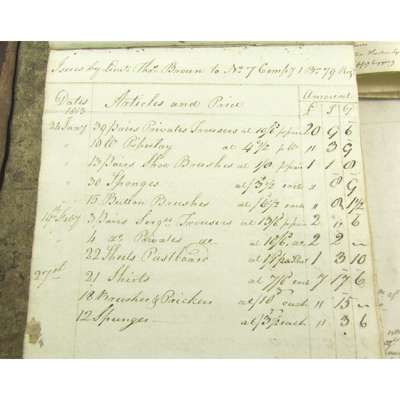 Issues by Lieut. Thos. Brown to No. 7 Compy 1 Bn. 79 Regt
Dates 1813 Articles and Price Amount £ S D
24 Jany 39 Pairs Privates Trousers at 10/6 p pair 20 9 6
" 10 lb Pipeclay at 4½ p lb " 3 9
" 13 Pairs Shoe Brushes at 1/8 p pair 1 1 8
" 30 Sponges at /3½ each " 8 9
" 15 Button Brushes at /6½ each " 8 1½
16th Feby 3 Pairs Sergts Trousers at 13/6 p pair 2 " 6
4 do Privates do at 10/6 do 2 2 "
22 Sheets Pasteboard at 1/ 1 3 10
27th 21 Shirts at 7/6 each 7 17 6
18 Brushes & Prickers at /10 each " 15 "
12 Sponges at /3½ each " 3 6